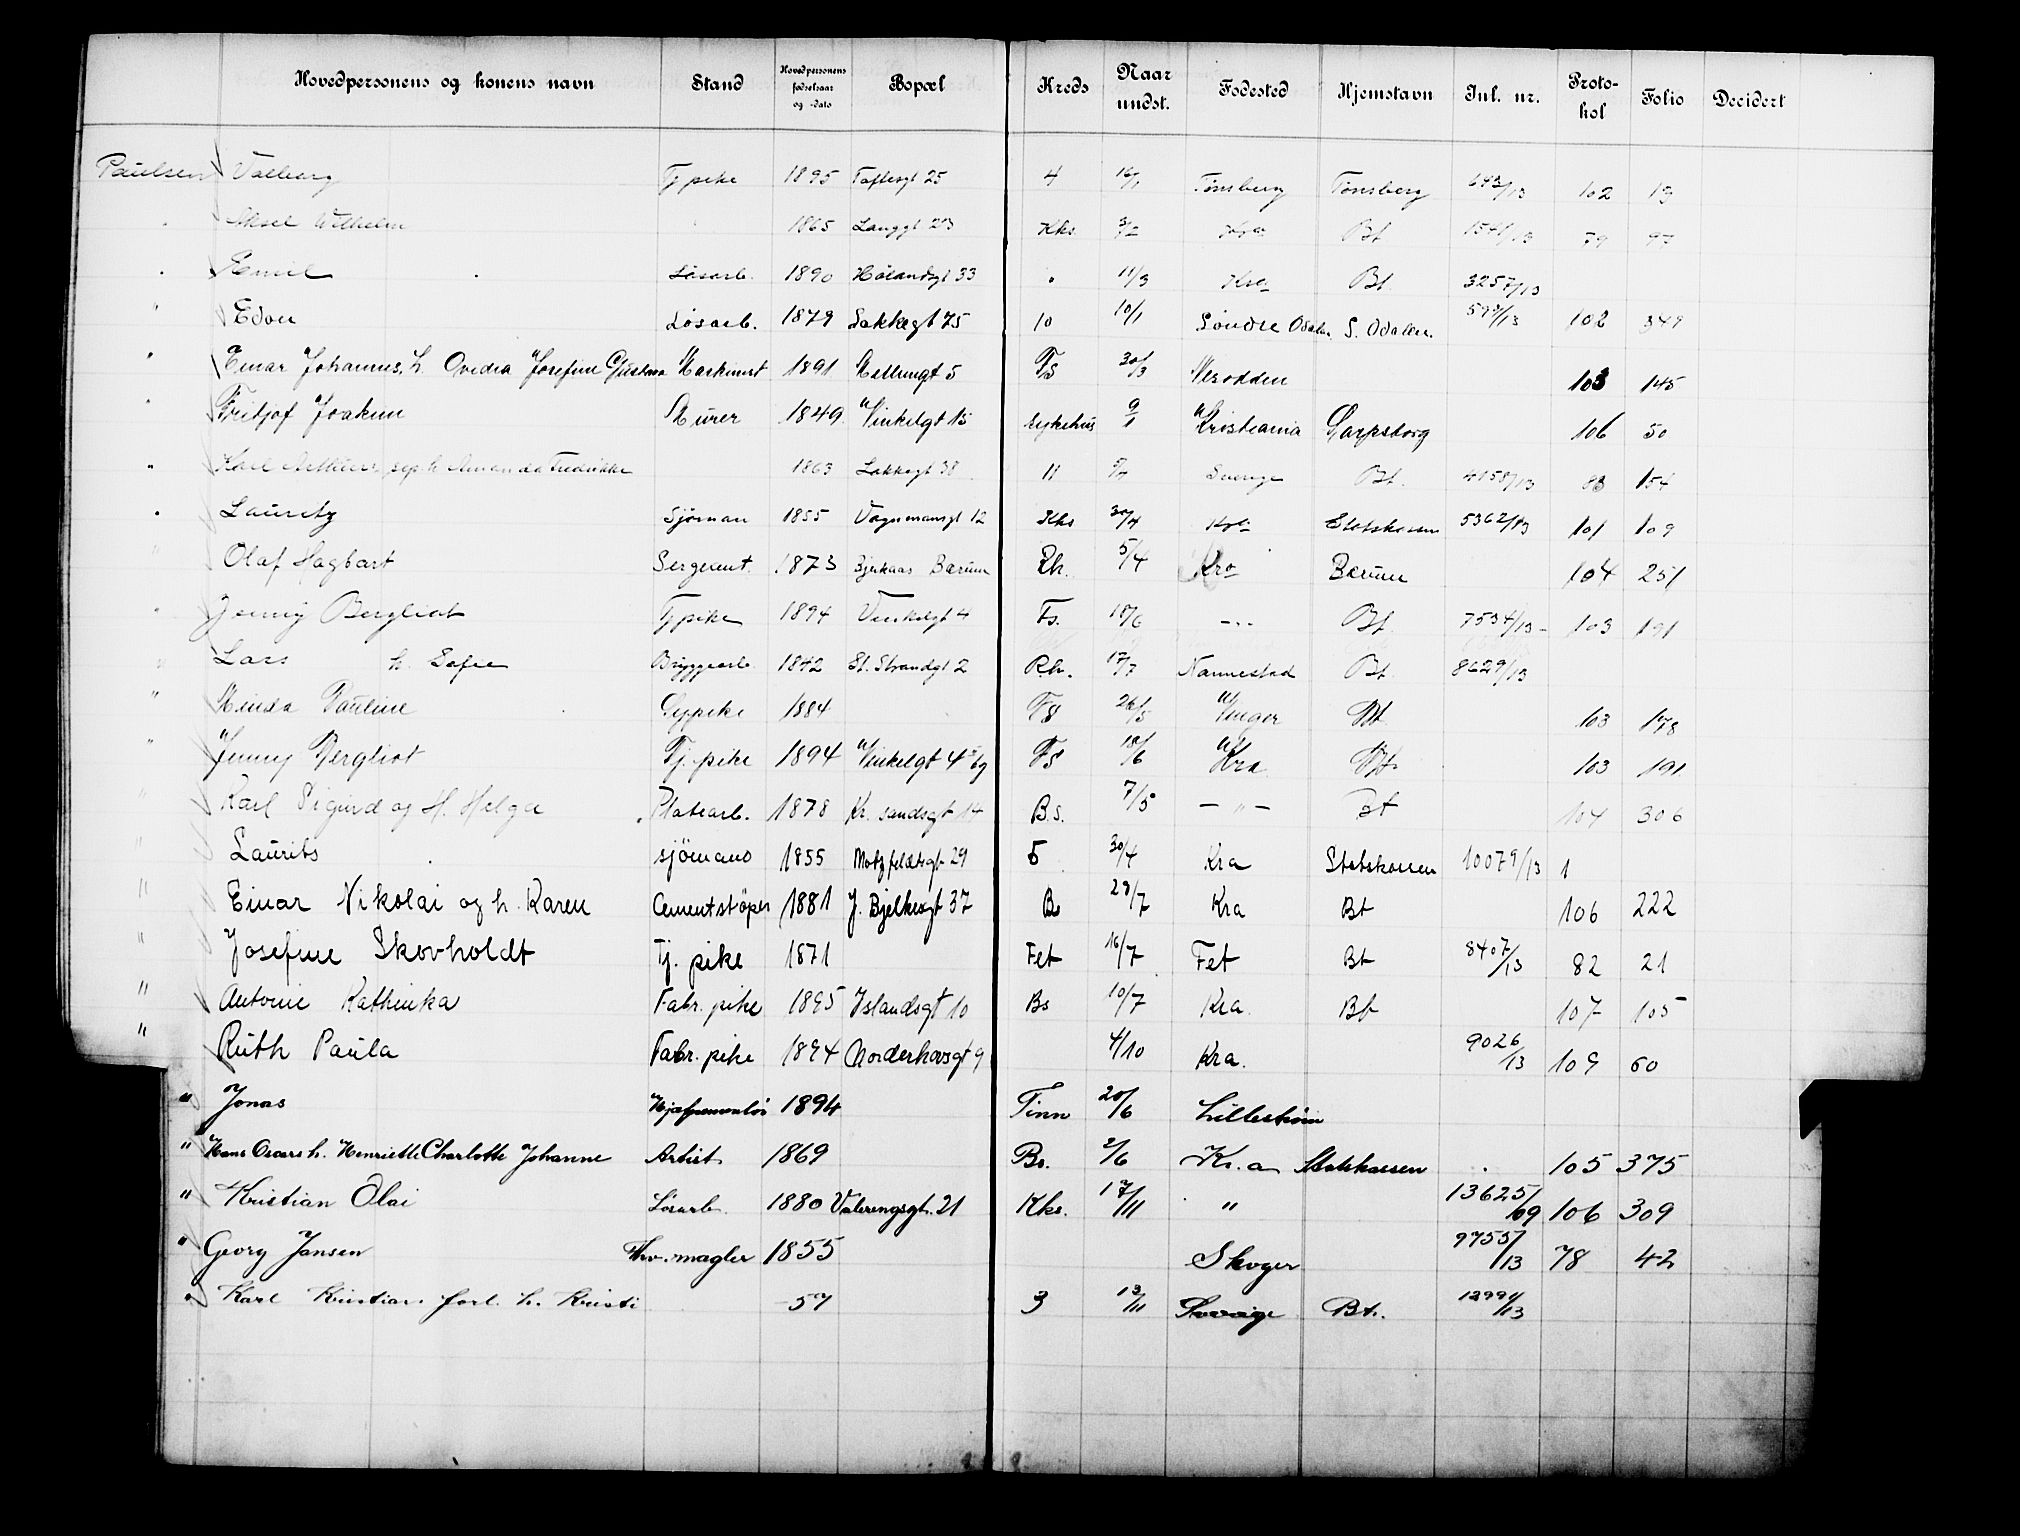 Hovedpersonens og konens navn Stand Hovedpersonens fødselsaar og -dato Bopæl Kreds Naar undst. Fødested Hjemstavn Inl. nr. Protokol Folio Decidert
Paulsen Valborg Tj pike 1895 Toftesgt 25 4 16/1 Tønsberg Tønsberg 643/13 102 13
" Aksel Wilhelm 1865 Langgt 23 Kks. 3/2 Kra Bt 1541/13 79 97
" Emil Løsarb. 1890 Hølandsgt 33 " 11/3 Kra Bt. 3257/13
" Edon Løsarb. 1879 Lakkegt 75 10 10/1 Søndre Odalen S. Odalen. 593/13 102 349
" Einar Johannes, h. Ovedia Josefine Gustava Maskinist 1891 Mellumgt 5 Fs 30/3 Nesodden 103 145
" Fridjof Joakim Murer 1849 Vinkelgt 15 Sykehus 9/1 Kristiania Sarpsborg 106 50
" Karl Arthur, sep. h Amanda Fredrikke 1863 Lakkegt 38 11 Sverige Bt. 4158/13 83 154
" Lauritz Sjøman 1855 Vognmansgt 12 Kks 30/4 Kra Statskassen 5362/13 101 109
" Olaf Hagbart Sergeant. 1873 Bjerkaas Bærum Rh. 5/4 Kra Bærum 104 251
" Jenny Bergliot Tj pike 1894 Vinkelgt 4 Fs. 18/6 -"- Bt. 7534/13 103 191
" Lars h. Sofie Bryggearb. 1842 St. Strandgt 2 Rh. 17/7 Nannestad Bt. 8629/13
" Minda Pauline Sypike 1884 Fs 26/5 Vinger Bt 103 178
" Jenny Bergliot Tj. pike 1894 Vinkelgt 4 Fs 18/6 Kra Bt 103 191
" Karl Sigurd og H. Helga Platearb. 1878 Kr. sandsgt 14 B.s. 7/5 - " - Bt 104 306
" Laurits sjömand 1855 Motzfeldtsgt 29 5 30/4 Kra Statskassen 10079/13 1
" Einar Nikolai og h. Karen Cementstøper 1881 J. Bjelkesgt 37 Bs 29/7 Kra Bt 106 222
" Josefine Skovholdt Tj. pike 1871 Fet 16/7 Fet Bt 8407/13 82 21
" Antonie Kathinka Fabr. pike 1895 Islandsgt 10 Bs 10/7 Kra. Bt 107 105
" Ruth Paula Fabr. pike 1894 Norderhovsgt 9 4/10 Kra. 9026/13 109 60
" Jonas 1894 Tinn 20/6 Lillestrøm
" Hans Oscar h. Henriette Charlotte Johanne Artist 1869 Bs. 2/6 Kr.a Statskassen 105 375
" Kristian Olai Løsarb. 1880 Valerengsgt. 21 Kks. 17/11 " 13625/09 106 309
" Georg Jansen 1855 Skoger 9755/13 78 42
" Karl Kristian forl. h. Kristi -57 3 13/11 Sverige Bt. 12994/13